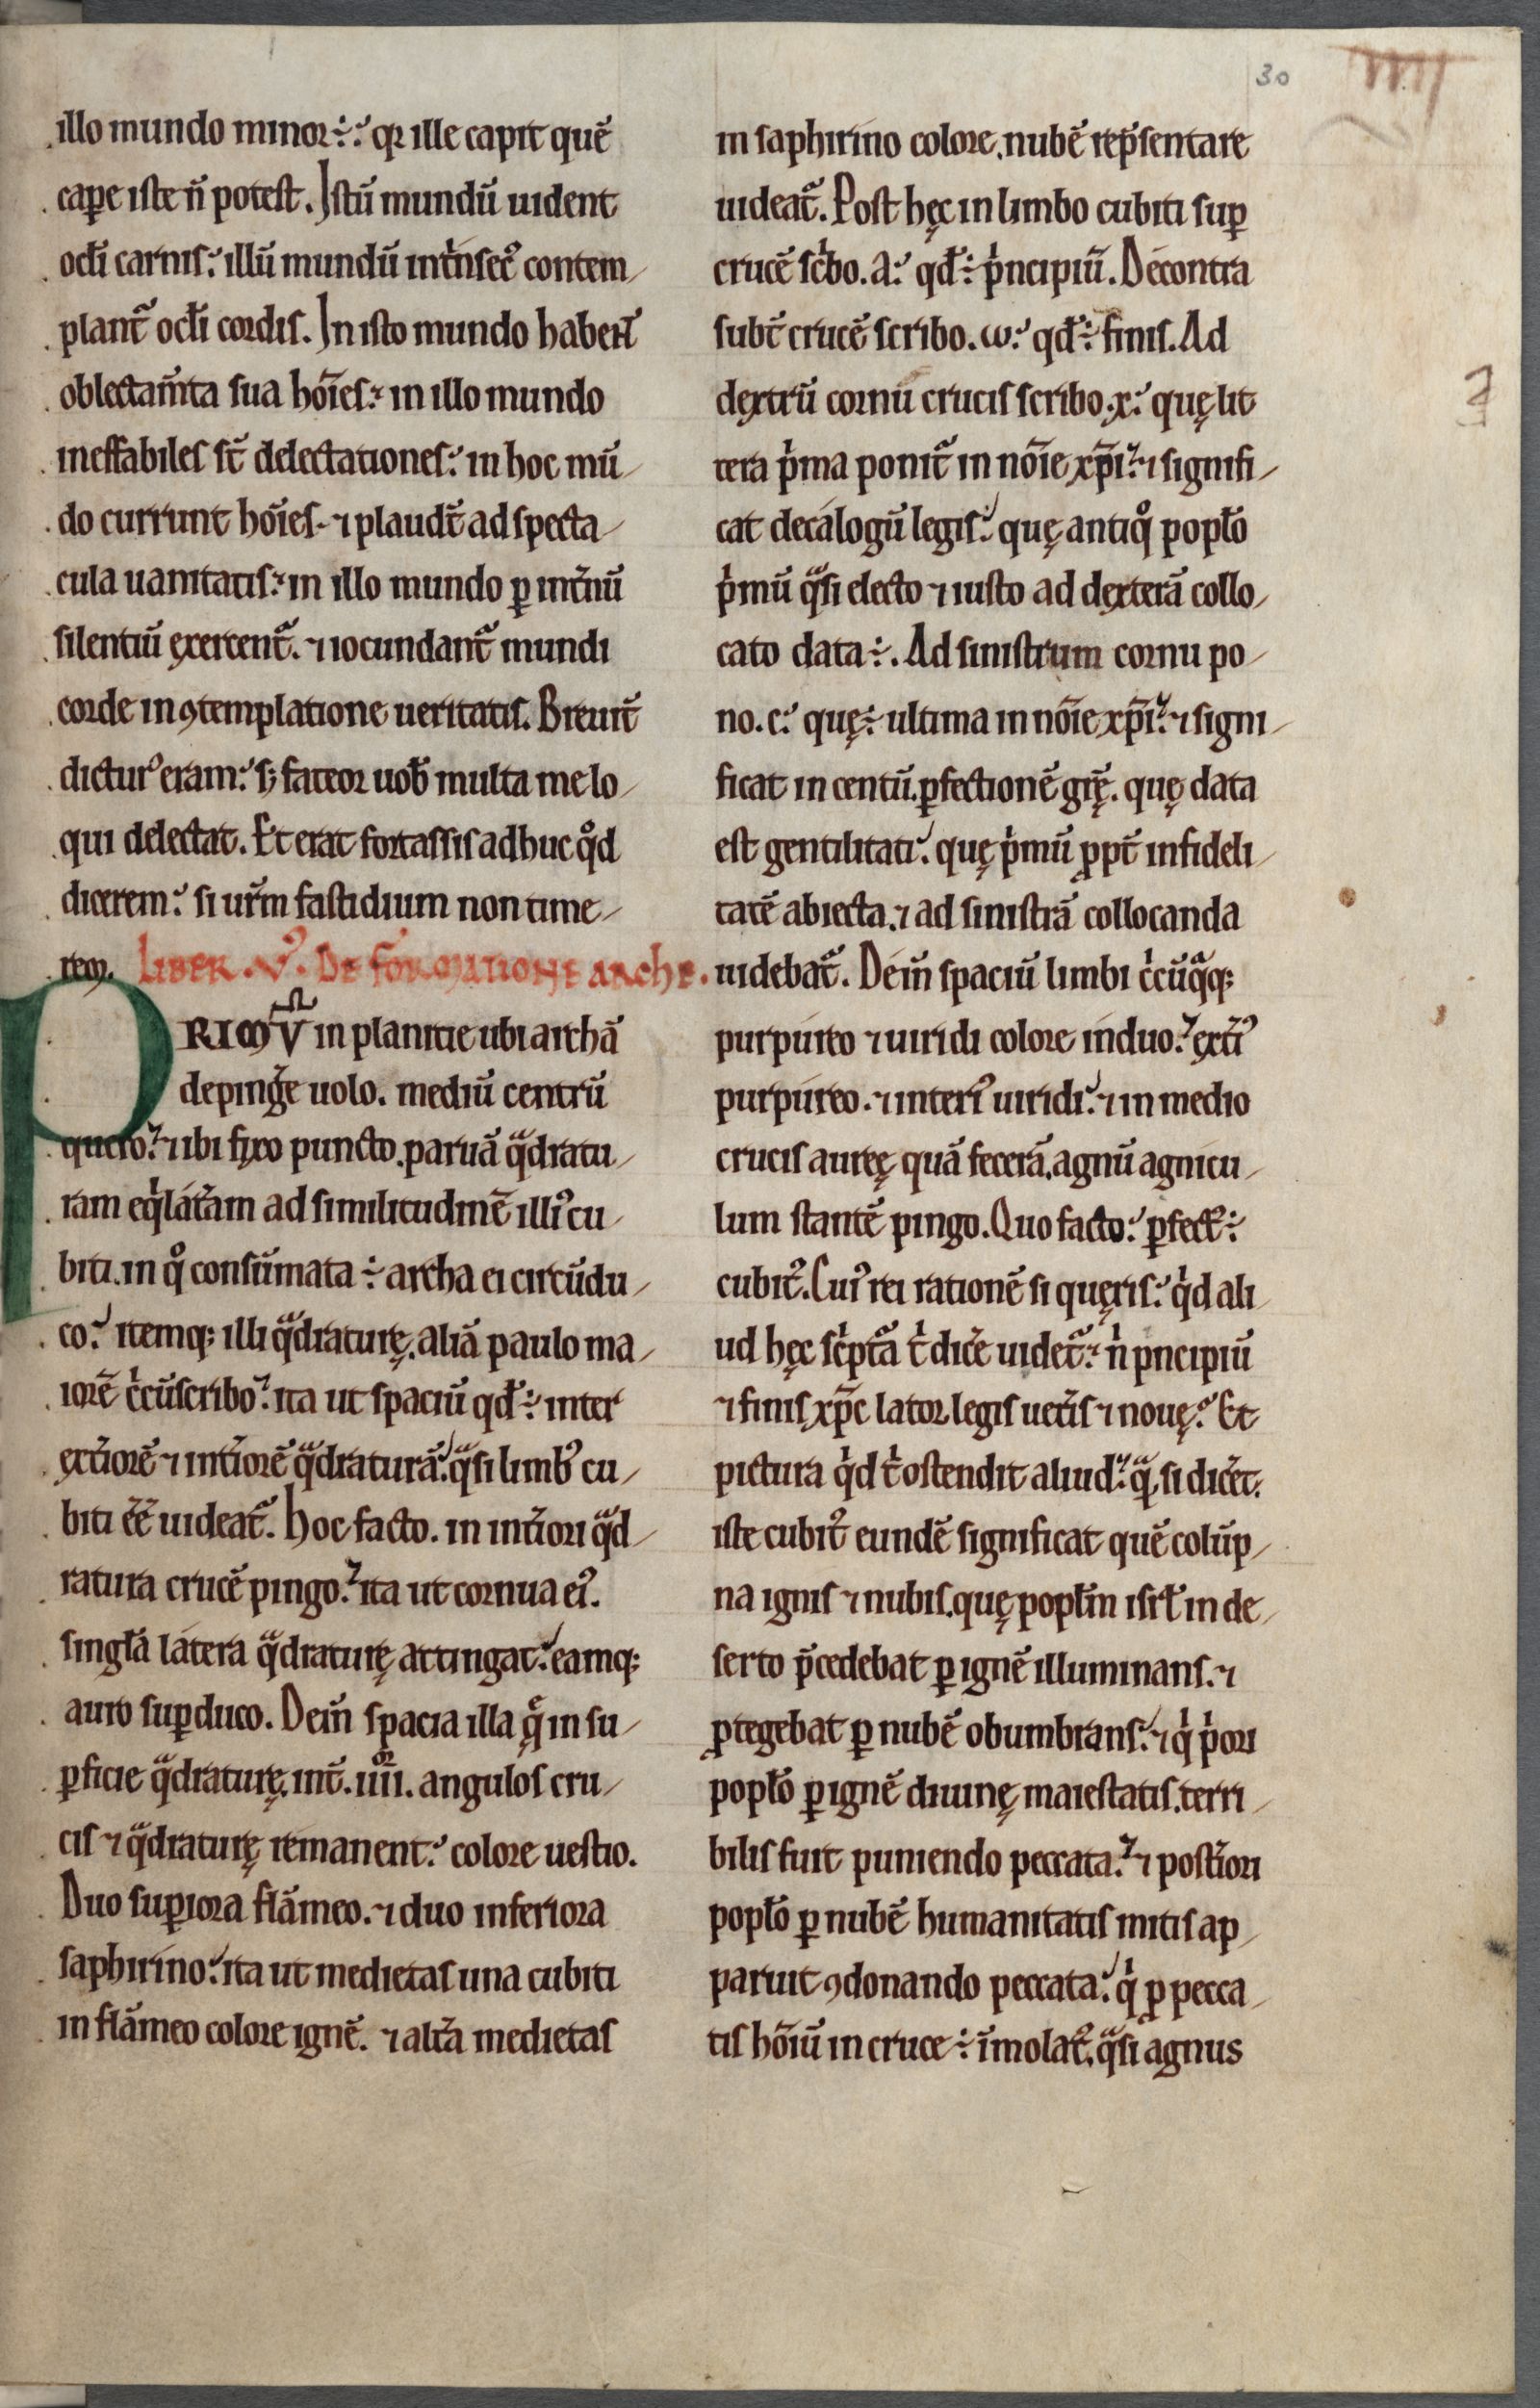 30
IIII
illo mundo minor ÷: qꝛ ille capit quē
capꝑe iste n̄ potest. Istū mundū uident
oc̄li carnis: illū mundū int̾nsecꝰ contem
plant᷑ oc̄li cordis. In isto mundo habent
oblectam̄ta sua hōies: in illo mundo
ineffabiles st̄ delectationes: in hoc mū
do currunt hōies. ⁊ plaudt̄ ad specta
cula uanitatis: in illo mundo ꝑ int̾nū
silentiū exercent᷑. ⁊ iocundant᷑ mundi
corde in ꝯtemplatione ueritatis. Breuit̾
dicturꝰ eram: sꝫ fateor uob̄ multa me lo
qui delectat. Et erat fortassis adhuc qͦd
dicerem: si ur̄m fastidium non time
rem. LIBER .Vꝰ. DE FORMATIONE ARCHE.
PRIMV̄ in planitie ubi archā
depinge̾ uolo. mediū centrū
quero: ⁊ ibi fixo puncto. paruā qͣdratu
ram eqͥlat̾am ad similitudinē illiꝰ cu
biti. in qͦ consūmata ÷ archa ei circūdu
co: itemqꝫ illi qͣdraturę. aliā paulo ma
iorē cͥcūscribo: ita ut spaciū qd̄ ÷ inter
ext̾iorē ⁊ int̾iorē qͣdraturā: qͣsi limbꝰ cu
biti ēē uideat᷑. Hoc facto. in int̾iori qͣd
ratura crucē pingo: ita ut cornua eiꝰ.
singl̄a latera qͣdraturę attingat: eamqꝫ
auro suꝑduco. Dein̄ spacia illa qͤ in su
ꝑficie qͣdraturę. int̾. IIIIᵒʳ. angulos cru
cis ⁊ qͣdraturę remanent: colore uestio.
Duo suꝑiora flāmeo. ⁊ duo inferiora
saphirino: ita ut medietas una cubiti
in flāmeo colore ignē. ⁊ alt̾a medietas
in saphirino colore. nubē rep̄sentare
uideat᷑. Post hęc in limbo cubiti suꝑ
crucē scͥbo. a: qd̄ ÷ pͥncipiū. Decontra
subt̾ crucē scribo. ω: qd̄ ÷ finis. Ad
dextrū cornu crucis scribo. x: quę lit
tera pͥma ponit᷑ in nōie xp̄i: ⁊ signifi
cat decalogū legis: quę antiqͦ popl̄o
pͥmū qͣsi electo ⁊ iusto ad dexterā collo
cato data ÷. Ad sinistrum cornu po
no. c: quę ÷ ultima in nōie xp̄i: ⁊ signi
ficat in centū. ꝑfectionē gr̄ę. quę data
est gentilitati: quę pͥmū ꝓpt̾ infideli
tatē abiecta. ⁊ ad sinistrā collocanda
uidebat᷑. Dein̄ spaciū limbi cͥcūqͣqꝫ
purpureo ⁊ uiridi colore induo: ext̾iꝰ
purpureo. ⁊ interiꝰ uiridi: ⁊ in medio
crucis aureę quā fecerā. agnū agnicu
lum stantē pingo. Quo facto: ꝑfectꝰ ÷
cubitꝰ. Cuiꝰ rei rationē si queris: qͥd ali
ud hęc scͥpta tͥ dice̾ uident᷑: n̄ pͥncipiū
⁊ finis xp̄c lator legis uet̾is ⁊ nouę. Et
pictura qͥd tͥ ostendit aliud: qͣ si dicet̾.
iste cubitꝰ eundē significat quē colūp
na ignis ⁊ nubis. quę popl̄m isrl̄ in de
serto p̄cedebat ꝑ ignē illuminans. ⁊
ꝓtegebat ꝑ nubē obumbrans: ⁊ qͥ pͥori
popl̄o ꝑ ignē diuinę maiestatis. terri
bilis fuit puniendo peccata: ⁊ post̾iori
popl̄o ꝑ nubē humanitatis mitis ap
paruit ꝯdonando peccata: qͥ ꝓ pecca
tis hōiū in cruce ÷ īmolatꝰ. qͣsi agnus